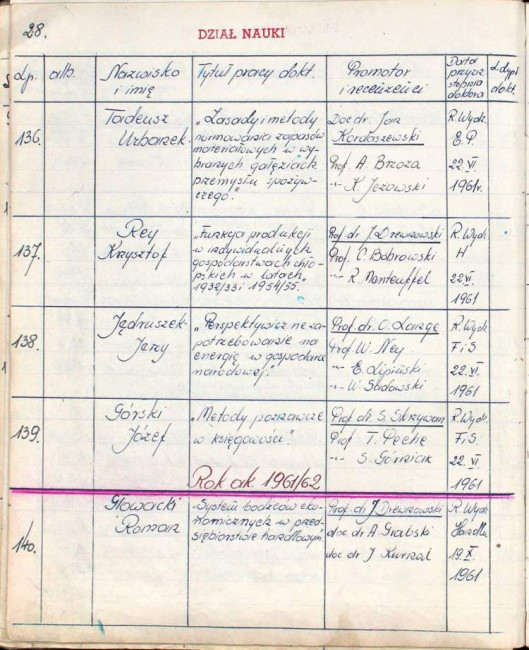 28.
DZIAŁ NAUKI
Lp. alb. Nazwisko i imię Tytuł pracy dokt. Promotor i recenzenci Data przyzn. stopnia doktora d. dypl. dokt.
136. Tadeusz Urbanek
„Zasady i metody
normowania zapasów
materiałowych w wy-
branych gałęziach
przemysłu spożyw-
czego".
Doc dr Jan
Kordaszewski
Prof. A. Brzoza
-"- K. Jeżowski
R. Wydz.
E.P.
22.VI.
1961r.
137. Rey Krzysztof
„Funkcja produkcji
w indywidualnych
gospodarstwach chło-
pskich w latach
1932/33 i 1954/55."
Prof. dr J. Drewnowski
Prof. C. Bobrowski
-"- R. Manteuffel
R. Wydz.
H
22.VI.
1961
138. Jędruszek Jerzy
„Perspektywiczne za-
potrzebowanie na
energię w gospodarce
narodowej".
Prof. dr. O. Lange
Prof W. Ney
-"- E. Lipiński
-"- W. Sadowski
R. Wydz.
F i S
22.VI.
1961
139. Górski Józef
„Metody poznawcze
w księgowości".
Prof. dr. S. Skrzywan
Prof T. Peche
-"- S. Góźniak
R. Wydz.
F i S.
22.VI.
1961
Rok ak. 1961/62.
140. Głowacki Roman
„System bodźców eko-
nomicznych w przed-
siębiorstwie handlowym".
Prof. dr J. Drewnowski
doc dr A Grabski
doc dr J Kurnal
R. Wydz
Handlu
19.X
1961